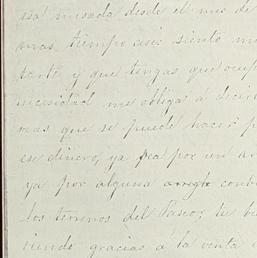 esa! mirada desde el mes de
mas tiempo asis siento m
tarte y que tengas que ocup
necesidad me obliga á decir
mas que se puede hacer p
ese dinero, ya sea por un a
ya por alguna arreglo cont
los terrenos del Paseo; tu b
niendo gracias á la venta